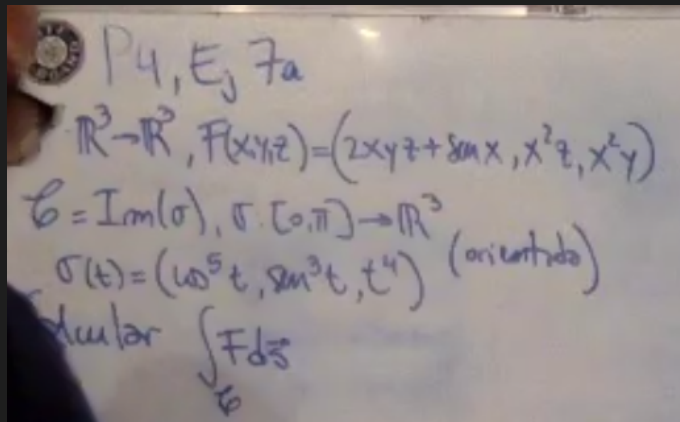 P4, Ej 7a
ℝ³→ℝ³, F(x,y,z)=(2xyz+sen x, x²z, x²y)
𝒞 = Im(σ), σ: [0,π]→ℝ³
σ(t)=(cos⁵t, sen³t, t⁴) (orientada)
∫_𝒞 F ds⃗